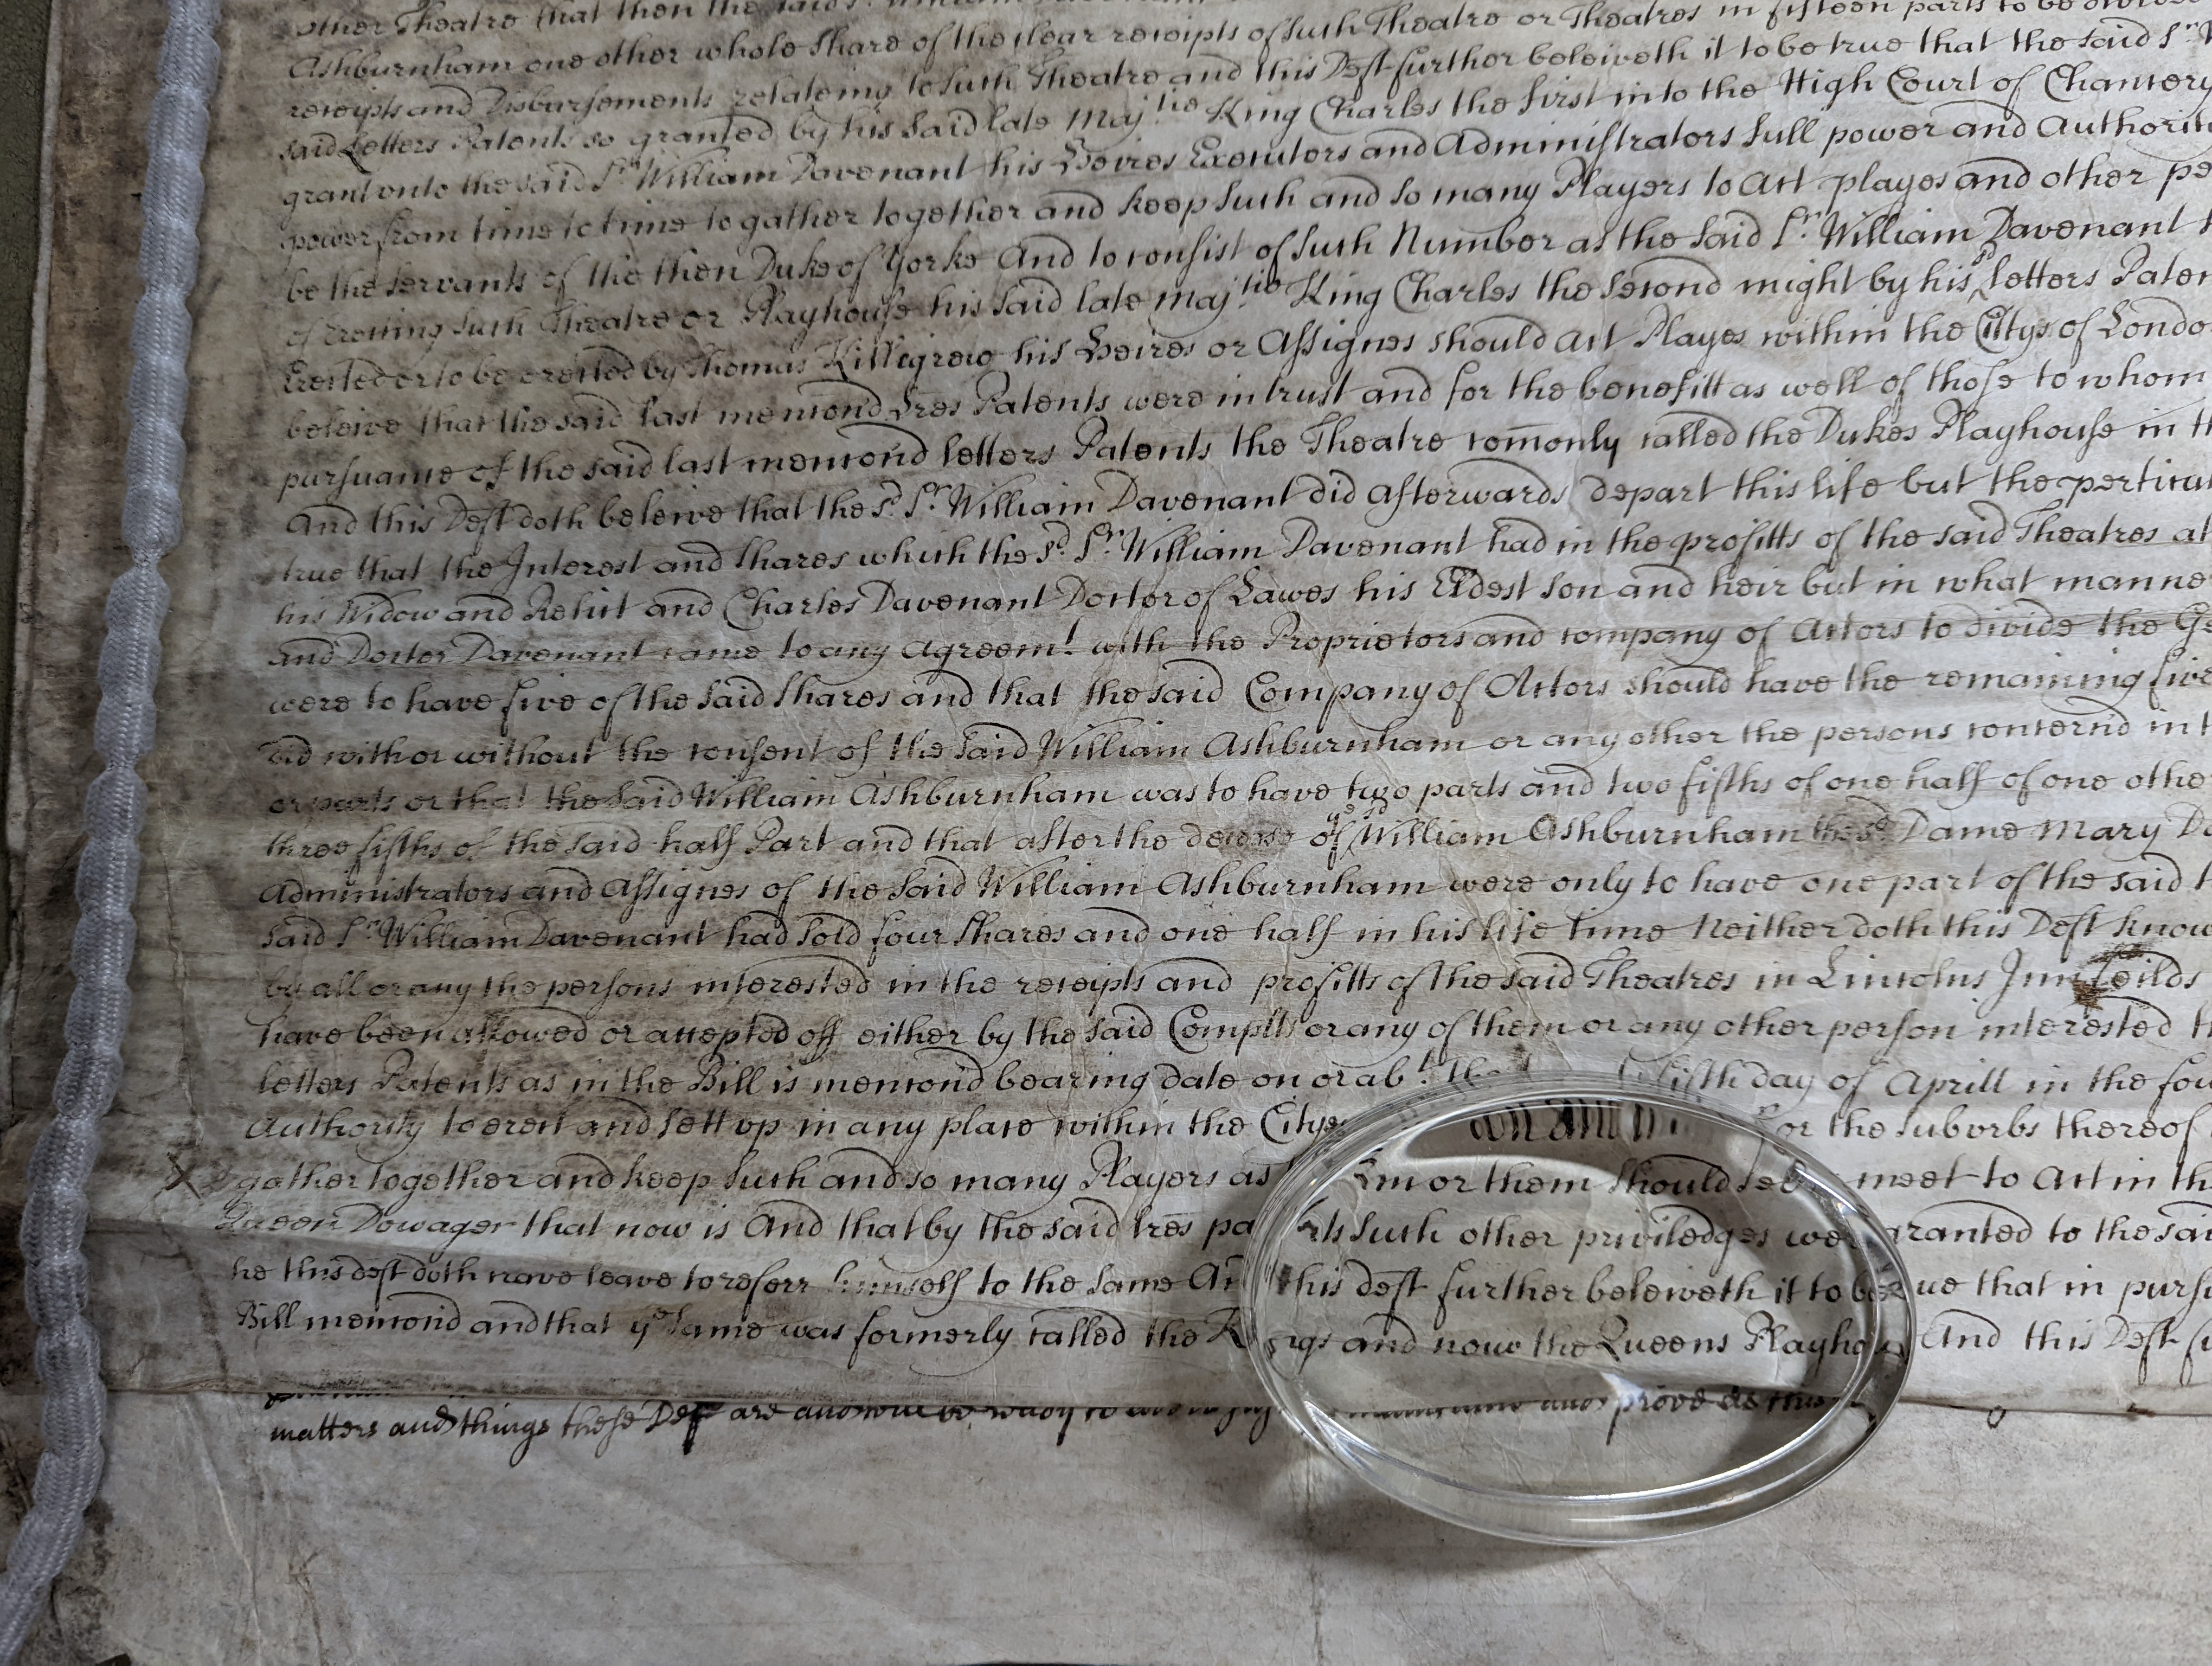 other Theatre that then the said
Ashburnham one other whole share of the clear receipts of such Theatre or Theatres in fifteen parts to be
receipts and Disbursements relateing to such Theatre and this Deft further beleiveth it to be true that the said Sr
said Letters Patents so granted by his said late Majtie King Charles the first into the High Court of Chancery
grant unto the said Sr William Davenant his Heires Executors and Administrators full power and Authority
power from time to time to gather together and keep such and so many Players to Act playes and other pe
be the servants of the then Duke of Yorke And to consist of such Number as the said Sr. William Davenant
of erecting such Theatre or Playhouse his said late Majtie King Charles the second might by his sd letters Paten
Erected or to be erected by Thomas Killegrew his Heires or Assignes should Act Playes within the Citys of Londo
beleive that the said last menc̃on̄d Lr̃es Patents were in trust and for the benefitt as well of those to whom
pursuance of the said last menc̃ond letters Patents the Theatre com̄only called the Dukes Playhouse in th
And this Deft doth beleive that the sd. Sr. William Davenant did afterwards depart this life but the perticul
true that the Interest and shares which the sd Sr. William Davenant had in the profitts of the said Theatres at
his Widow and Relict and Charles Davenant Doctor of Lawes his Eldest son and heir but in what manne
and Doctor Davenant came to any Agreemt. with the Proprietors and company of Actors to divide the Ge
were to have five of the said shares and that the said Company of Actors should have the remaining five
did with or without the consent of the said William Ashburnham or any other the persons concernd in t
or parts or that the said William Ashburnham was to have two parts and two fifths of one half of one othe
three fifths of the said half Part and that after the decease of ye sd William Ashburnham the sd Dame Mary Da
Administrators and Assignes of the said William Ashburnham were only to have one part of the said t
said Sr. William Davenant had sold four shares and one half in his life time Neither doth this Deft know
by all or any the persons interested in the receipts and profitts of the said Theatres in Lincolns Inn feilds
have been allowed or accepted off either by the said Complts or any of them or any other person interested t
letters Patents as in the Bill is menc̃ond bearing date on or abt. the fifth day of Aprill in the fou
Authority to erect and sett up in any place within the Citys or the suburbs thereof
X gather together and keep such and so many Players as him or them should see meet to Act in th
Queen Dowager that now is And that by the said lr̃es patents such other priviledges were granted to the sai
he this deft doth crave leave to referr himself to the same And this deft further beleiveth it to be true that in pursu
Bill menc̃ond and that ye same was formerly called the Kings and now the Queens Playhouse And this Deft fu
matters and things these Defts are prove as this